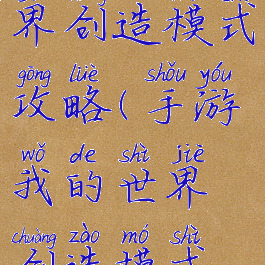 界创造模式
gōng lüè shǒu yóu
攻略(手游
wǒ de shì jiè
我的世界
chuàng zào mó shì
创造模式